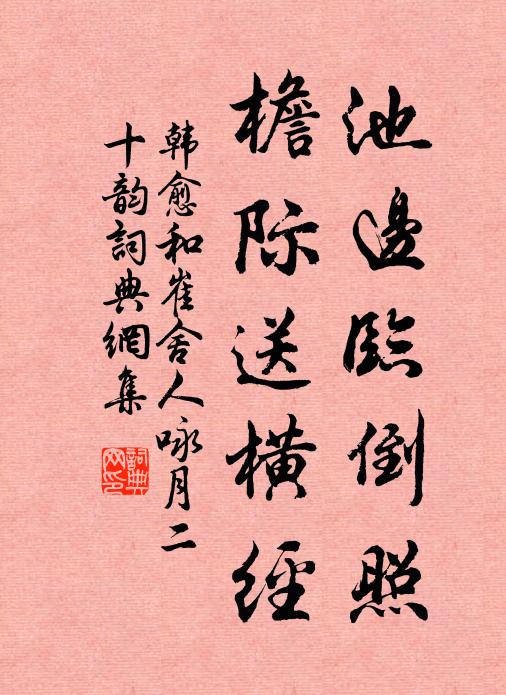 池邊臨倒照
檐际送橫經
韩愈和崔舍人咏月二
十韵詞典網集
詞典網印